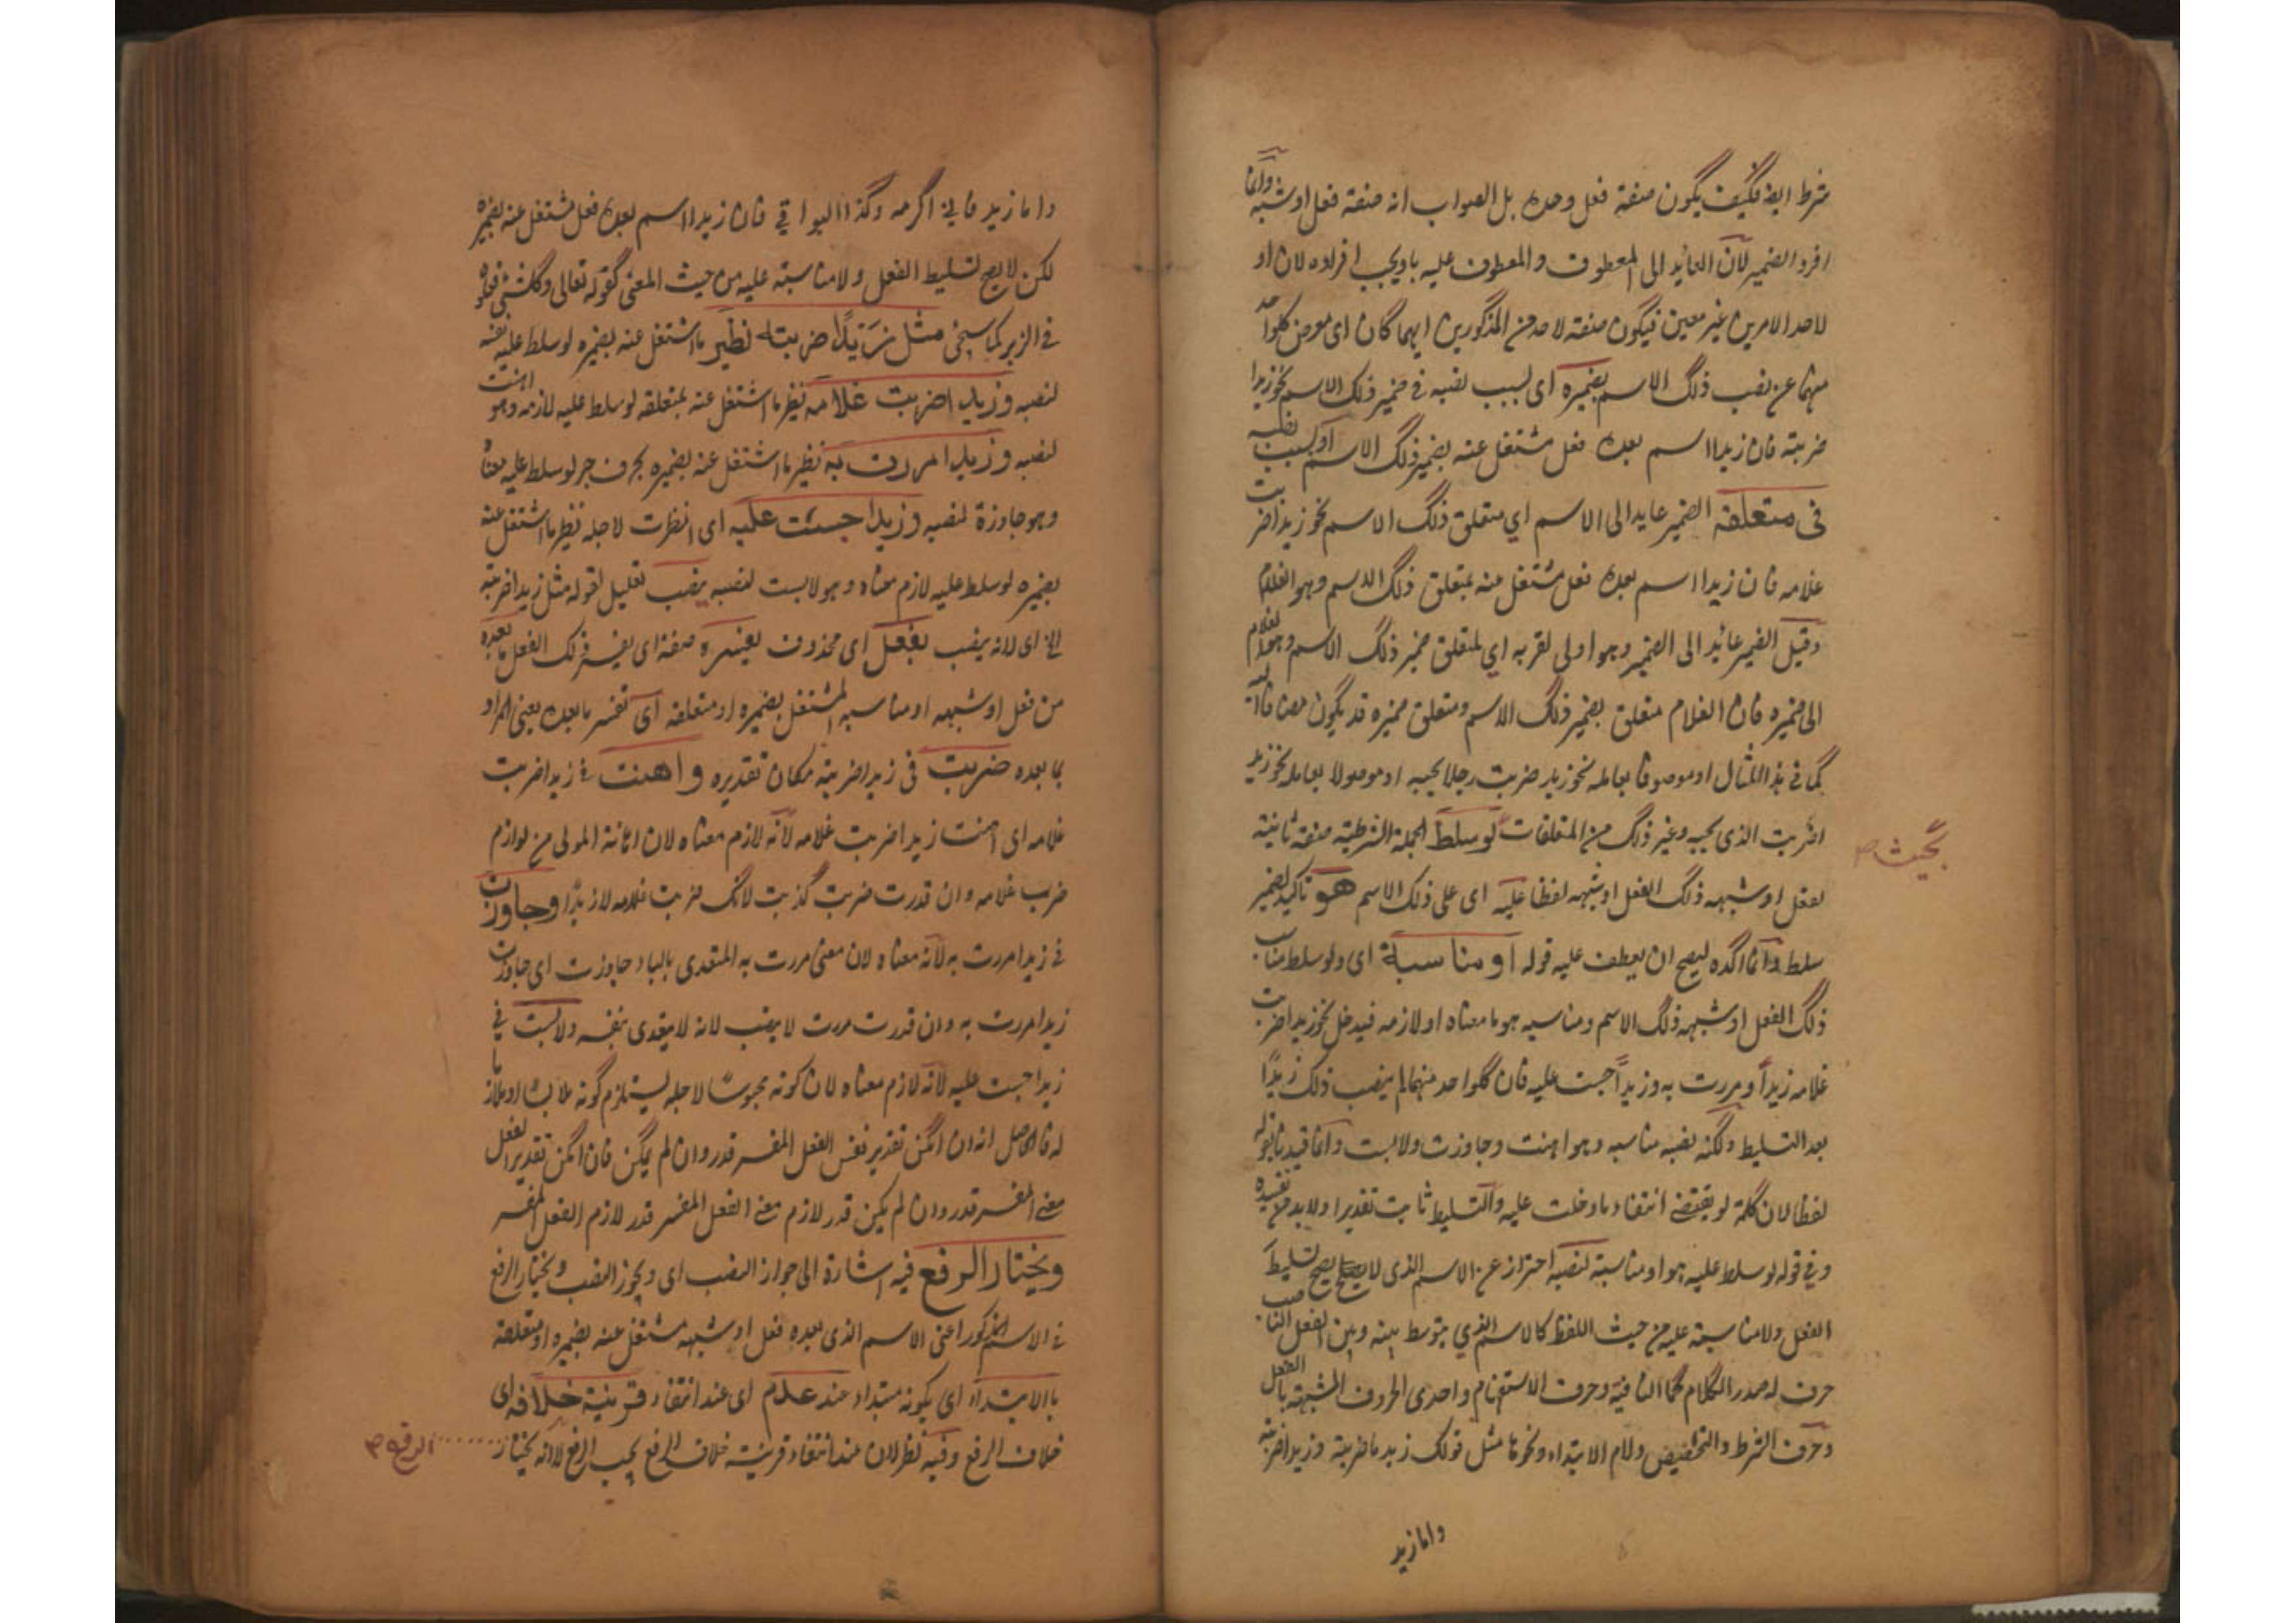 شرط ايضا فكيف يكون صفة فعل وحده بل الصواب انه صفة فعل او شبهه وانما
افرد الضمير لان العائد الى المعطوف والمعطوف عليه باو يجب افراده لان او
لاحد الامرين غير معين فيكون صفة لاحد من المذكورين ايهما كان اى معرض كلواحد
منهما عن نصب ذلك الاسم بضميره اى بسبب نصبه فى ضمير ذلك الاسم نحو زيدا
ضربته فان زيدا اسم بعده فعل مشتغل عنه بضمير ذلك الاسم او بسبب نصبه
فى متعلقه الضمير عايد الى الاسم اي متعلق ذلك الاسم نحو زيدا ضربت
غلامه فان زيدا اسم بعده فعل مشتغل عنه بمتعلق ذلك الاسم وهو الغلام
وقيل الضمير عائد الى الضمير وهو اولى لقربه اي لمتعلق ضمير ذلك الاسم وهو الغلام
الى ضميره فان الغلام متعلق بضمير ذلك الاسم ومتعلق ضميره قد يكون مضافا اليه
كما فى هذا المثال او موصوفا بعامله نحو زيد ضربت رجلا يحبه او موصولا بعامله نحو زيد
اضربت الذى يحبه وغير ذلك من المتعلقات لو سلط الجملة الشرطية صفة ثانية
بحيث صح
لفعل او شبهه ذلك الفعل او شبهه لفظا عليه اى على ذلك الاسم هو تاكيد لضمير
سلط وانما اكده ليصح ان يعطف عليه قوله او مناسبة اى ولو سلط مناسب
ذلك الفعل او شبهه ذلك الاسم ومناسبه هو ما معناه او لازمه فيدخل نحو زيدا ضربت
غلامه زيدا ومررت به وزيدا حبست عليه فان كلواحد منهما لم ينصب ذلك زيدا
بعد التسليط ولكنه نصبه مناسبه وهو اهنت وجاوزت ولابست وانما قيدنا بقوله
لفظا لان كلمة لو يقتضى انتفاء ما دخلت عليه والتسليط ثابت تقديرا ولابد من تقييده
وفى قوله لو سلط عليه هو او مناسبة لنصبه احتراز عن الاسم الذى لا يصح تسليط
الفعل ولا مناسبة عليه من حيث اللفظ كالاسم الذي يتوسط بينه وبين الفعل الناصب
حرف له صدر الكلام كما النافية وحرف الاستفهام واحدى الحروف المشبهة بالفعل
وحرف الشرط والتحضيض ولام الابتداء ونحوها مثل قولك زيد ما ضربته وزيد اضربته
واما زيد
واما زيد فانى اكرمه وكذا البواقي فان زيدا اسم بعده فعل مشتغل عنه بضميره
لكن لا يصح تسليط الفعل ولا مناسبته عليه من حيث المعنى كقوله تعالى وكل شئ فعلوه
فى الزبر كما سيجئ مثل زيدا ضربته نظير ما اشتغل عنه بضميره لو سلط عليه نفسه
لنصبه وزيدا ضربت غلامه نظير ما اشتغل عنه بمتعلقه لو سلط عليه لازمه وهو اهنت
لنصبه وزيدا مررت به نظير ما اشتغل عنه بضميره بحرف جر لو سلط عليه معناه
وهو جاوزة لنصبه وزيدا حبست عليه اى انتظرت لاجله نظير ما اشتغل عنه
بضميره لو سلط عليه لازم معناه وهو لابست لنصبه ينصب تعليل لقوله مثل زيدا ضربته
الخ اى لانه ينصب بفعل اى محذوف يفسره صفة اى يفسر ذلك الفعل ما بعده
من فعل او شبهه او مناسبه المشتغل بضميره او متعلقه اى تفسر ما بعده يعنى المراد
بما بعده ضربت فى زيدا ضربته مكان تقديره واهنت فى زيدا ضربت
غلامه اى اهنت زيدا ضربت غلامه لانه لازم معناه لان اهانة المولى من لوازم
ضرب غلامه وان قدرت ضربت كذبت لانك ضربت غلامه لا زيدا وجاوزت
فى زيدا مررت به لانه معناه لان معنى مررت به المتعدى بالباء جاوزت اى جاوزت
زيدا مررت به وان قدرت مررت لا ينصب لانه لا يتعدى بنفسه ولابست فى
زيدا حبست عليه لانه لازم معناه لان كونه محبوسا لاجله يستلزم كونه ملابسا او ملازما
له فالحاصل انه ان امكن تقدير نفس الفعل المفسر قدر وان لم يكن فان امكن تقدير الفعل
معنى المفسر قدر وان لم يكن قدر لازم معنى الفعل المفسر قدر لازم الفعل المفسر
ويختار الرفع فيه اشارة الى جواز النصب اى ويجوز النصب ويختار الرفع
فى الاسم المذكور اعنى الاسم الذى بعده فعل او شبهه مشتغل عنه بضميره او متعلقه
بالابتداء اى بكونه مبتداء عند عدم اى عند انتفاء قرينة خلافه اى
خلاف الرفع وفيه نظر لان عند انتفاء قرينة خلاف الرفع يجب الرفع لا انه يختار
الرفع صح